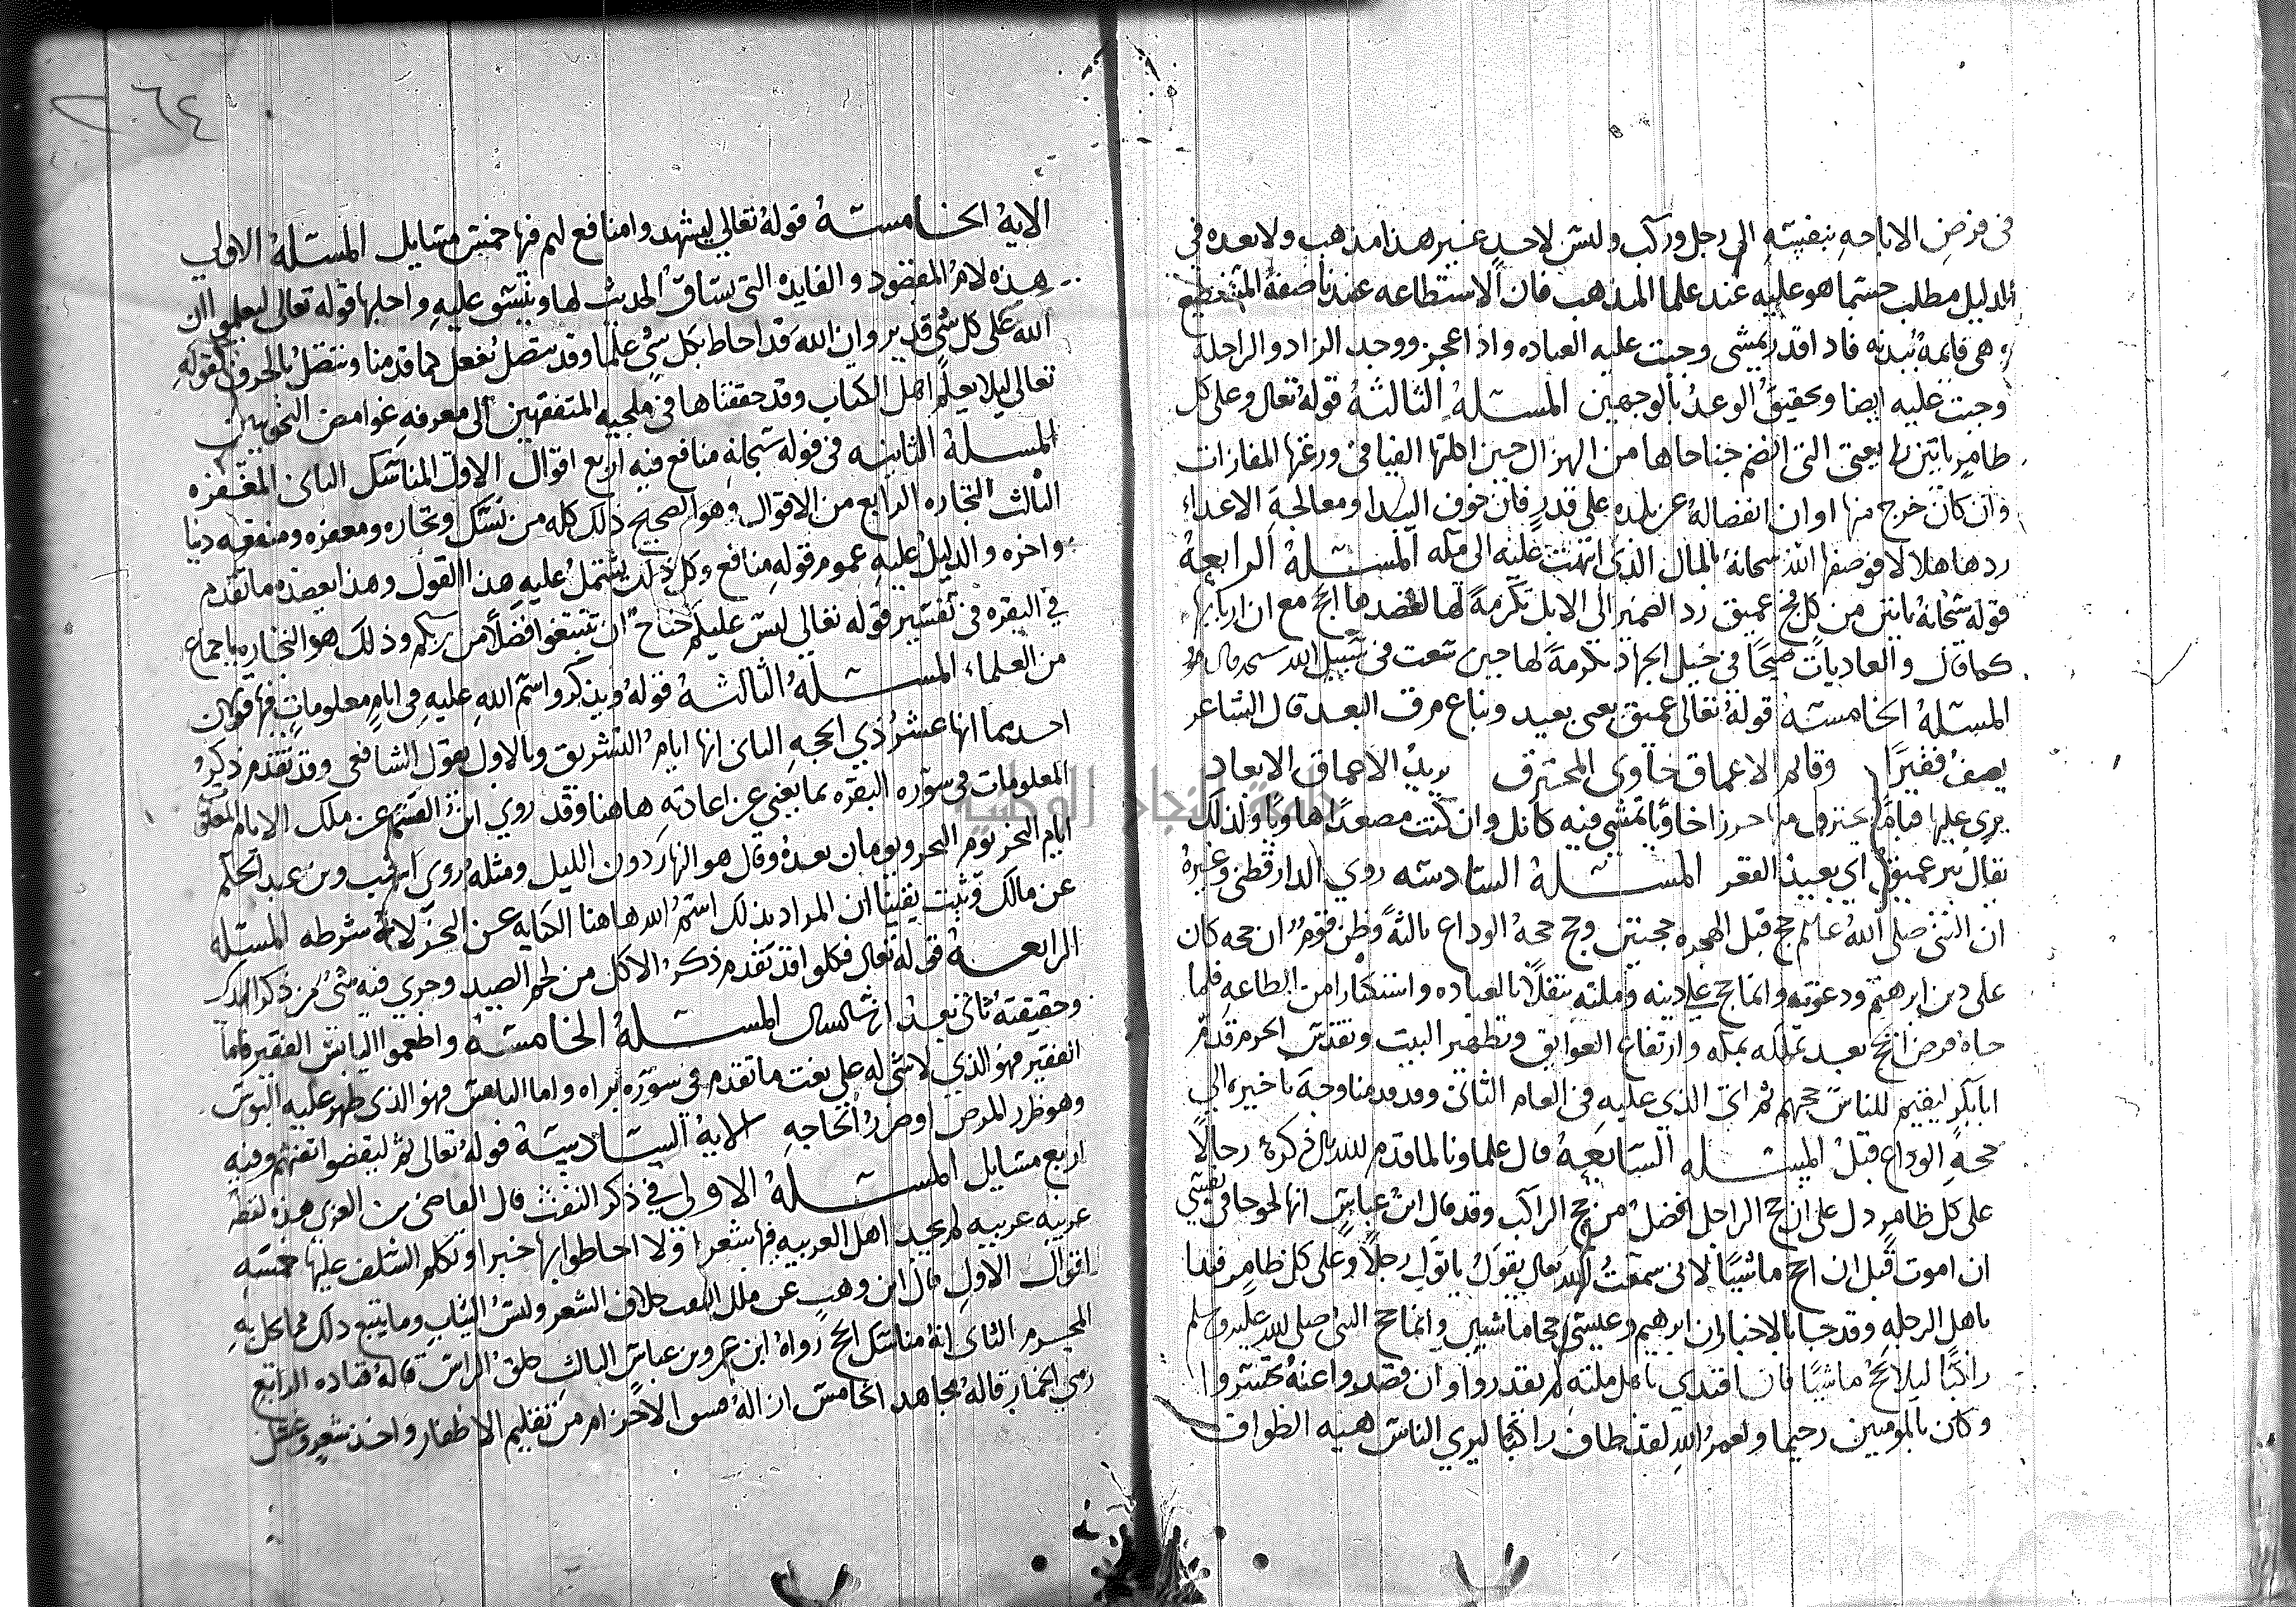 في فرض الاباحه بنفسه الى رجل وركب وليس لاحد غير هذا مذهب ولا بعده في
الدليل مطلب حسبما هو عليه عند علما المذهب فان الاستطاعه عندنا صفة المستطيع
وهي قايمة ببدنه فاذا قدر يمشي وجبت عليه العباده واذا عجز ووجد الزاد والراحلة
وجبت عليه ايضا وتحقيق الوعد بالوجهين المسئلة الثالثة قوله تعالى وعلى كل
ضامر ياتين يعني التي انضم جناحاها من الهزال حين اكلتها الفيافي ورعتها المفازات
وان كان خرج منها اوان انفصاله عن بلده على قدر فان خوف البيدا ومعالجة الاعداء
ردها هلالا فوصفها الله سبحانه بالمال الذي انتهت عليه الى مكه المسئلة الرابعة
قوله سبحانه ياتين من كل فج عميق رد الضمير الى الابل تكرمة لها لقصدها الحج مع ان اربابها
كما قال والعاديات ضبحا في خيل الجهاد تكرمة لها حين سعت في سبيل الله
المسئلة الخامسة قوله تعالى عميق يعني بعيد وبناع مرق البعد قال الشاعر
يصف فقيرا وقاتم الاعماق خاوي المخترق يريد الاعماق الابعاد
يرى عليها قياما يخترق منها خاويا تمشي فيه كانك وان كنت مصعدا هاويا ولذلك
يقال بير عميق اي بعيد القعر المسئلة السادسه روي الدارقطني وغيره
ان النبي صلى الله عليه حج قبل الهجره حجتين وحج حجة الوداع ثالثة وظن قوم ان حجه كان
على دين ابرهيم ودعوته وانما حج على دينه وملته تنفلا بالعباده واستكثارا من الطاعه فلما
جاه فرض الحج بعد تملكه بمكه وارتفاع العوايق وتطهير البيت وتقديس الحرم قدم
ابا بكر ليقيم للناس حجهم ثم ادى الذي عليه في العام الثاني وقد قدمنا وجه تاخيره الى
حجة الوداع قبل المسئله السابعة قال علماونا لما قدم الله تعالى ذكره رجالا
على كل ضامر دل على ان حج الراجل افضل من حج الراكب وقد قال ابن عباس انها لحوجا في نفسي
ان اموت قبل ان احج ماشيا لاني سمعت الله تعالى يقول ياتوك رجالا وعلى كل ضامر فبدا
باهل الرجله وقد جا بالاخبار ان ابرهيم وعيسى حجا ماشيين وانما حج النبي صلى الله عليه وسلم
راكبا ليلا يحج ماشيا فان اقتدي به اهل ملته لم يقدروا وان قصدوا عنه تحسروا
وكان بالمومنين رحيما ولعمر الله لقد طاف راكبا ليري الناس هيه الطواف
٢٦٤
الاية الخامسة قوله تعالى ليشهدوا منافع لهم فيها خمس مسايل المسئلة الاولى
هذه لام المقصود والفايده التي يساق الحديث لها وينسق عليه واجلها قوله تعالى لتعلموا ان
الله على كل شي قدير وان الله قد احاط بكل شي علما وقد يتصل بفعل كما قدمنا وتتصل بالحرف كقوله
تعالى ليلا يعلم اهل الكتاب وقد حققناها في ملجيه المتفقهين الى معرفه غوامض النحويين
المسئلة الثانيه في قوله سبحانه منافع فيه اربع اقوال الاول المناسك الثاني المغفره
الثالث التجاره الرابع من الاقوال وهو الصحيح ذلك كله من نسك وتجاره ومغفره ومنفعه دنيا
واخره والدليل عليه عموم قوله منافع وكل ذلك يشتمل عليه هذا القول وهذا يعضده ما تقدم
في البقره في تفسير قوله تعالى ليس عليكم جناح ان تبتغوا فضلا من ربكم وذلك هو التجاره باجماع
من العلماء المسئلة الثالثة قوله ويذكروا اسم الله عليه في ايام معلومات فيها قولان
احدهما انها عشر ذي الحجه الثاني انها ايام التشريق وبالاول يقول الشافعي وقد تقدم ذكر
المعلومات في سوره البقره بما يغني عن اعادته هاهنا وقد روي ابن القسم عن ملك الايام المعلومات
ايام النحر يوم النحر ويومان بعده وقال هو النهار دون الليل ومثله روى اشهب وبن عبد الحكم
عن مالك وثبت يقينا ان المراد بذلك اسم الله هاهنا الكنايه عن النحر لانه شرطه المسئله
الرابعة قوله تعالى فكلوا قد تقدم ذكر الاكل من لحم الصيد وجرى فيه شي من ذكر الهدي
وحقيقته ثاني بعد المسئلة الخامسة واطعموا البايس الفقير فاما
الفقير فهو الذي لا شي له على نعت ما تقدم في سوره براه واما البايس فهو الذي ظهر عليه البوس
وهو ظرر المرض او ضرر الحاجه الاية السادسة قوله تعالى ثم ليقضوا تفثهم وفيه
اربع مسايل المسئلة الاولى في ذكر التفث قال القاضي بن العربي هذه لفظة
عربيه غريبه لم يجد اهل العربيه فيها شعرا ولا احاطوا بها خبرا وتكلم السلف عليها خمسه
اقوال الاول قال ابن وهب عن ملك التفث حلاق الشعر ولبس الثياب وما يتبع ذلك مما يحل به
المحرم الثاني انه مناسك الحج رواه ابن عمر وبن عباس الثالث حلق الراس قاله قتاده الرابع
رمي الجمار قاله مجاهد الخامس ازالة قسو الاحرام من تقليم الاظفار واخذ شعر وغسل
جامعة النجاح الوطنية